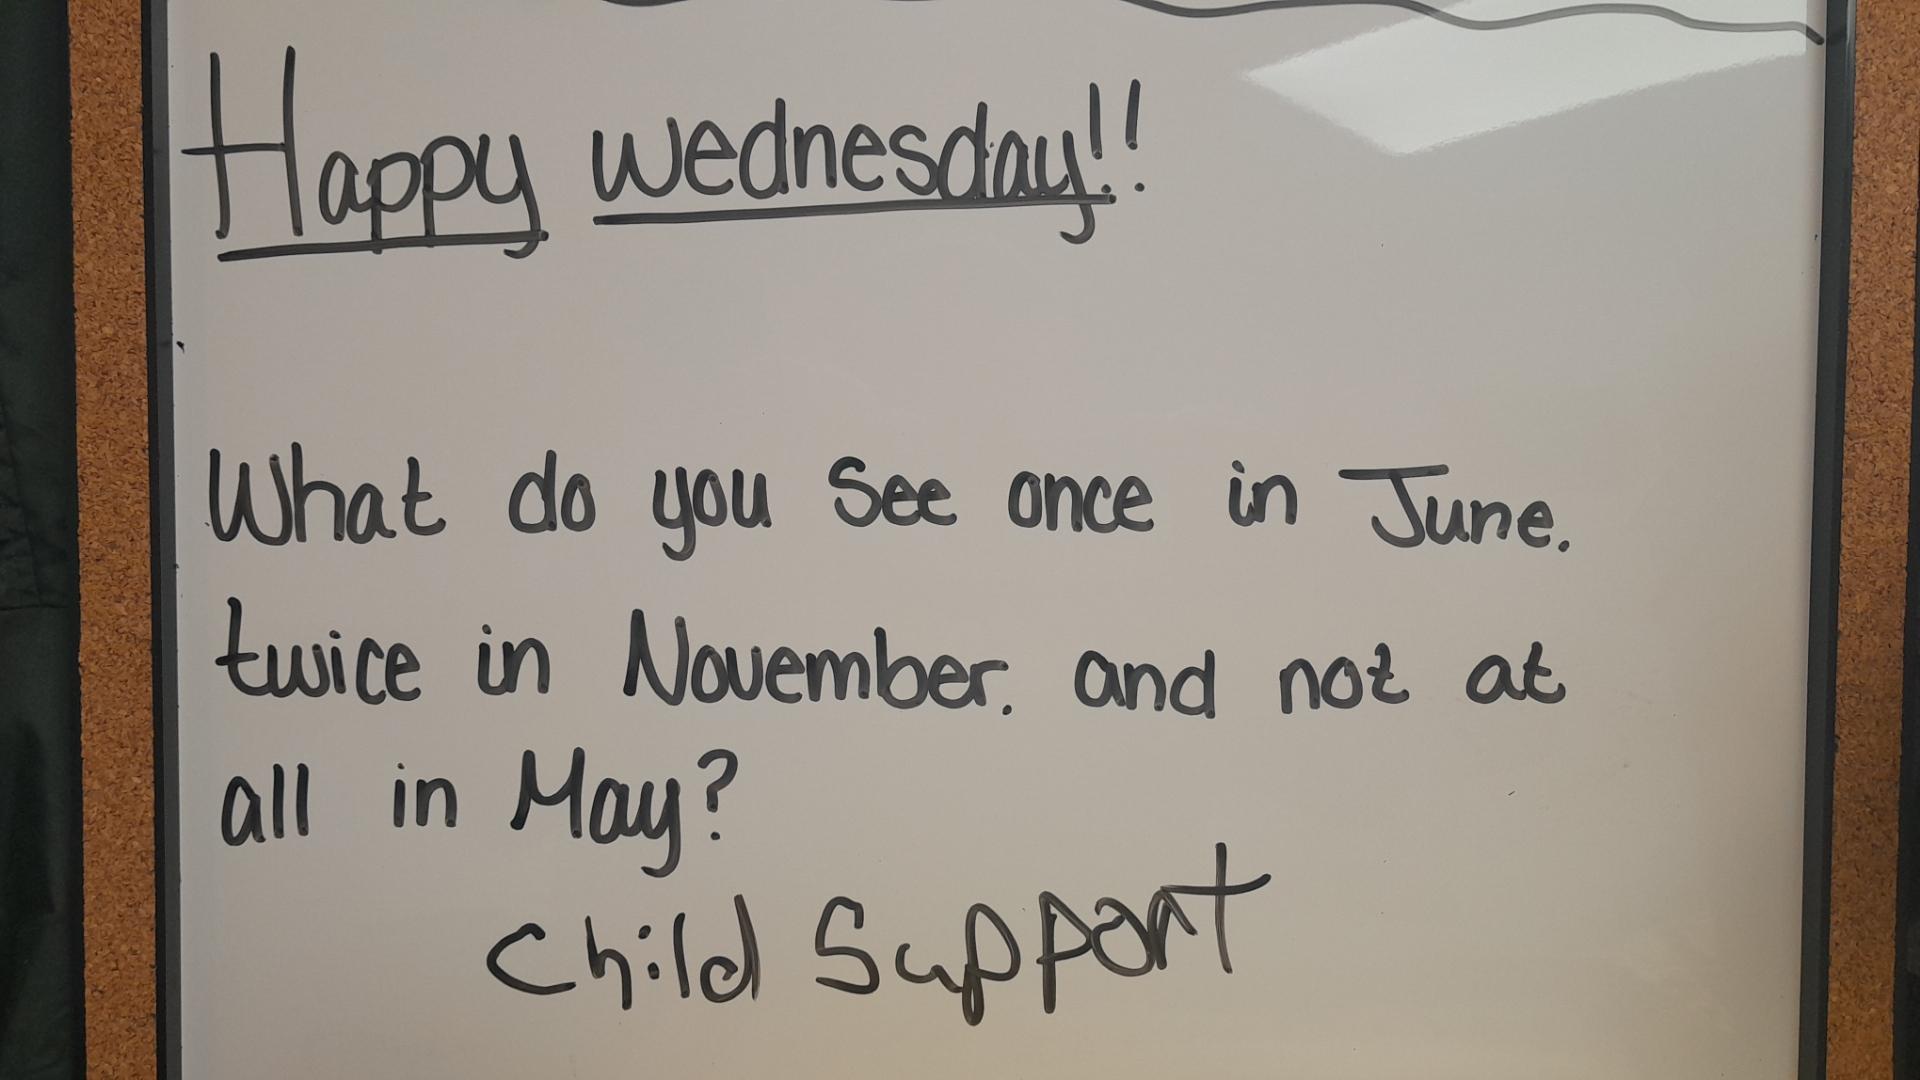 Happy Wednesday!!
What do you See once in June.
twice in November. and not at
all in May?
Child Support